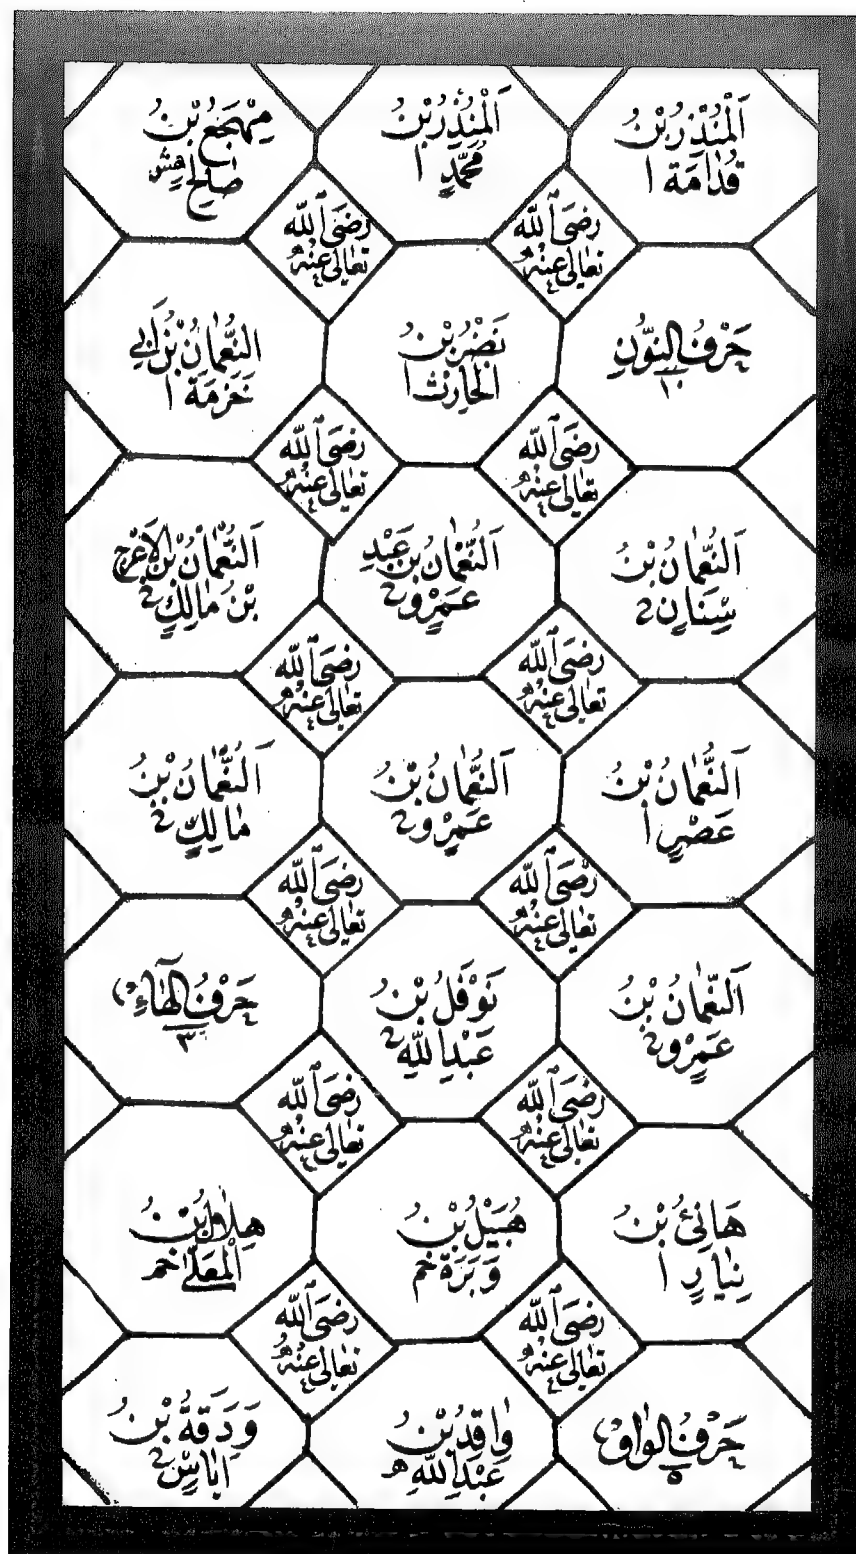 اَلْمُنْذِرُ بْنُ
قُدَامَةَ ا
اَلْمُنْذِرُ بْنُ
مُحَمَّدٍ ا
مِهْجَعُ بْنُ
صَالِحٍ هش
رَضِیَ اللّٰهُ
تَعَالٰی عَنْهُ
رَضِیَ اللّٰهُ
تَعَالٰی عَنْهُ
حَرْفُ النُّوْنِ
١٠
نَضْرُ بْنُ
الْحَارِثِ ا
النُّعْمَانُ بْنُ اَبِي
خَزْمَةَ ا
رَضِیَ اللّٰهُ
تَعَالٰی عَنْهُ
رَضِیَ اللّٰهُ
تَعَالٰی عَنْهُ
اَلنُّعْمَانُ بْنُ
سِنَانٍ خ
اَلنُّعْمَانُ بْنُ عَبْدِ
عَمْرٍو خ
اَلنُّعْمَانُ بْنُ الْاَعْرَجِ
بْنُ مَالِكٍ خ
رَضِیَ اللّٰهُ
تَعَالٰی عَنْهُ
رَضِیَ اللّٰهُ
تَعَالٰی عَنْهُ
اَلنُّعْمَانُ بْنُ
عَصْرٍ ا
اَلنُّعْمَانُ بْنُ
عَمْرٍو خ
اَلنُّعْمَانُ بْنُ
مَالِكٍ خ
رَضِیَ اللّٰهُ
تَعَالٰی عَنْهُ
رَضِیَ اللّٰهُ
تَعَالٰی عَنْهُ
اَلنُّعْمَانُ بْنُ
عَمْرٍو خ
نَوْفَلُ بْنُ
عَبْدِ اللّٰهِ خ
حَرْفُ الْهَاءِ
٣
رَضِیَ اللّٰهُ
تَعَالٰی عَنْهُ
رَضِیَ اللّٰهُ
تَعَالٰی عَنْهُ
هَانِئُ بْنُ
نِيَارٍ ا
هُبَيْلُ بْنُ
وَبَرَةَ خم
هِلَالُ بْنُ
الْمُعَلّٰى خم
رَضِیَ اللّٰهُ
تَعَالٰی عَنْهُ
رَضِیَ اللّٰهُ
تَعَالٰی عَنْهُ
حَرْفُ الْوَاوِ
٥
وَاقِدُ بْنُ
عَبْدِ اللّٰهِ ه
وَدَقَةُ بْنُ
اِيَاسٍ خ